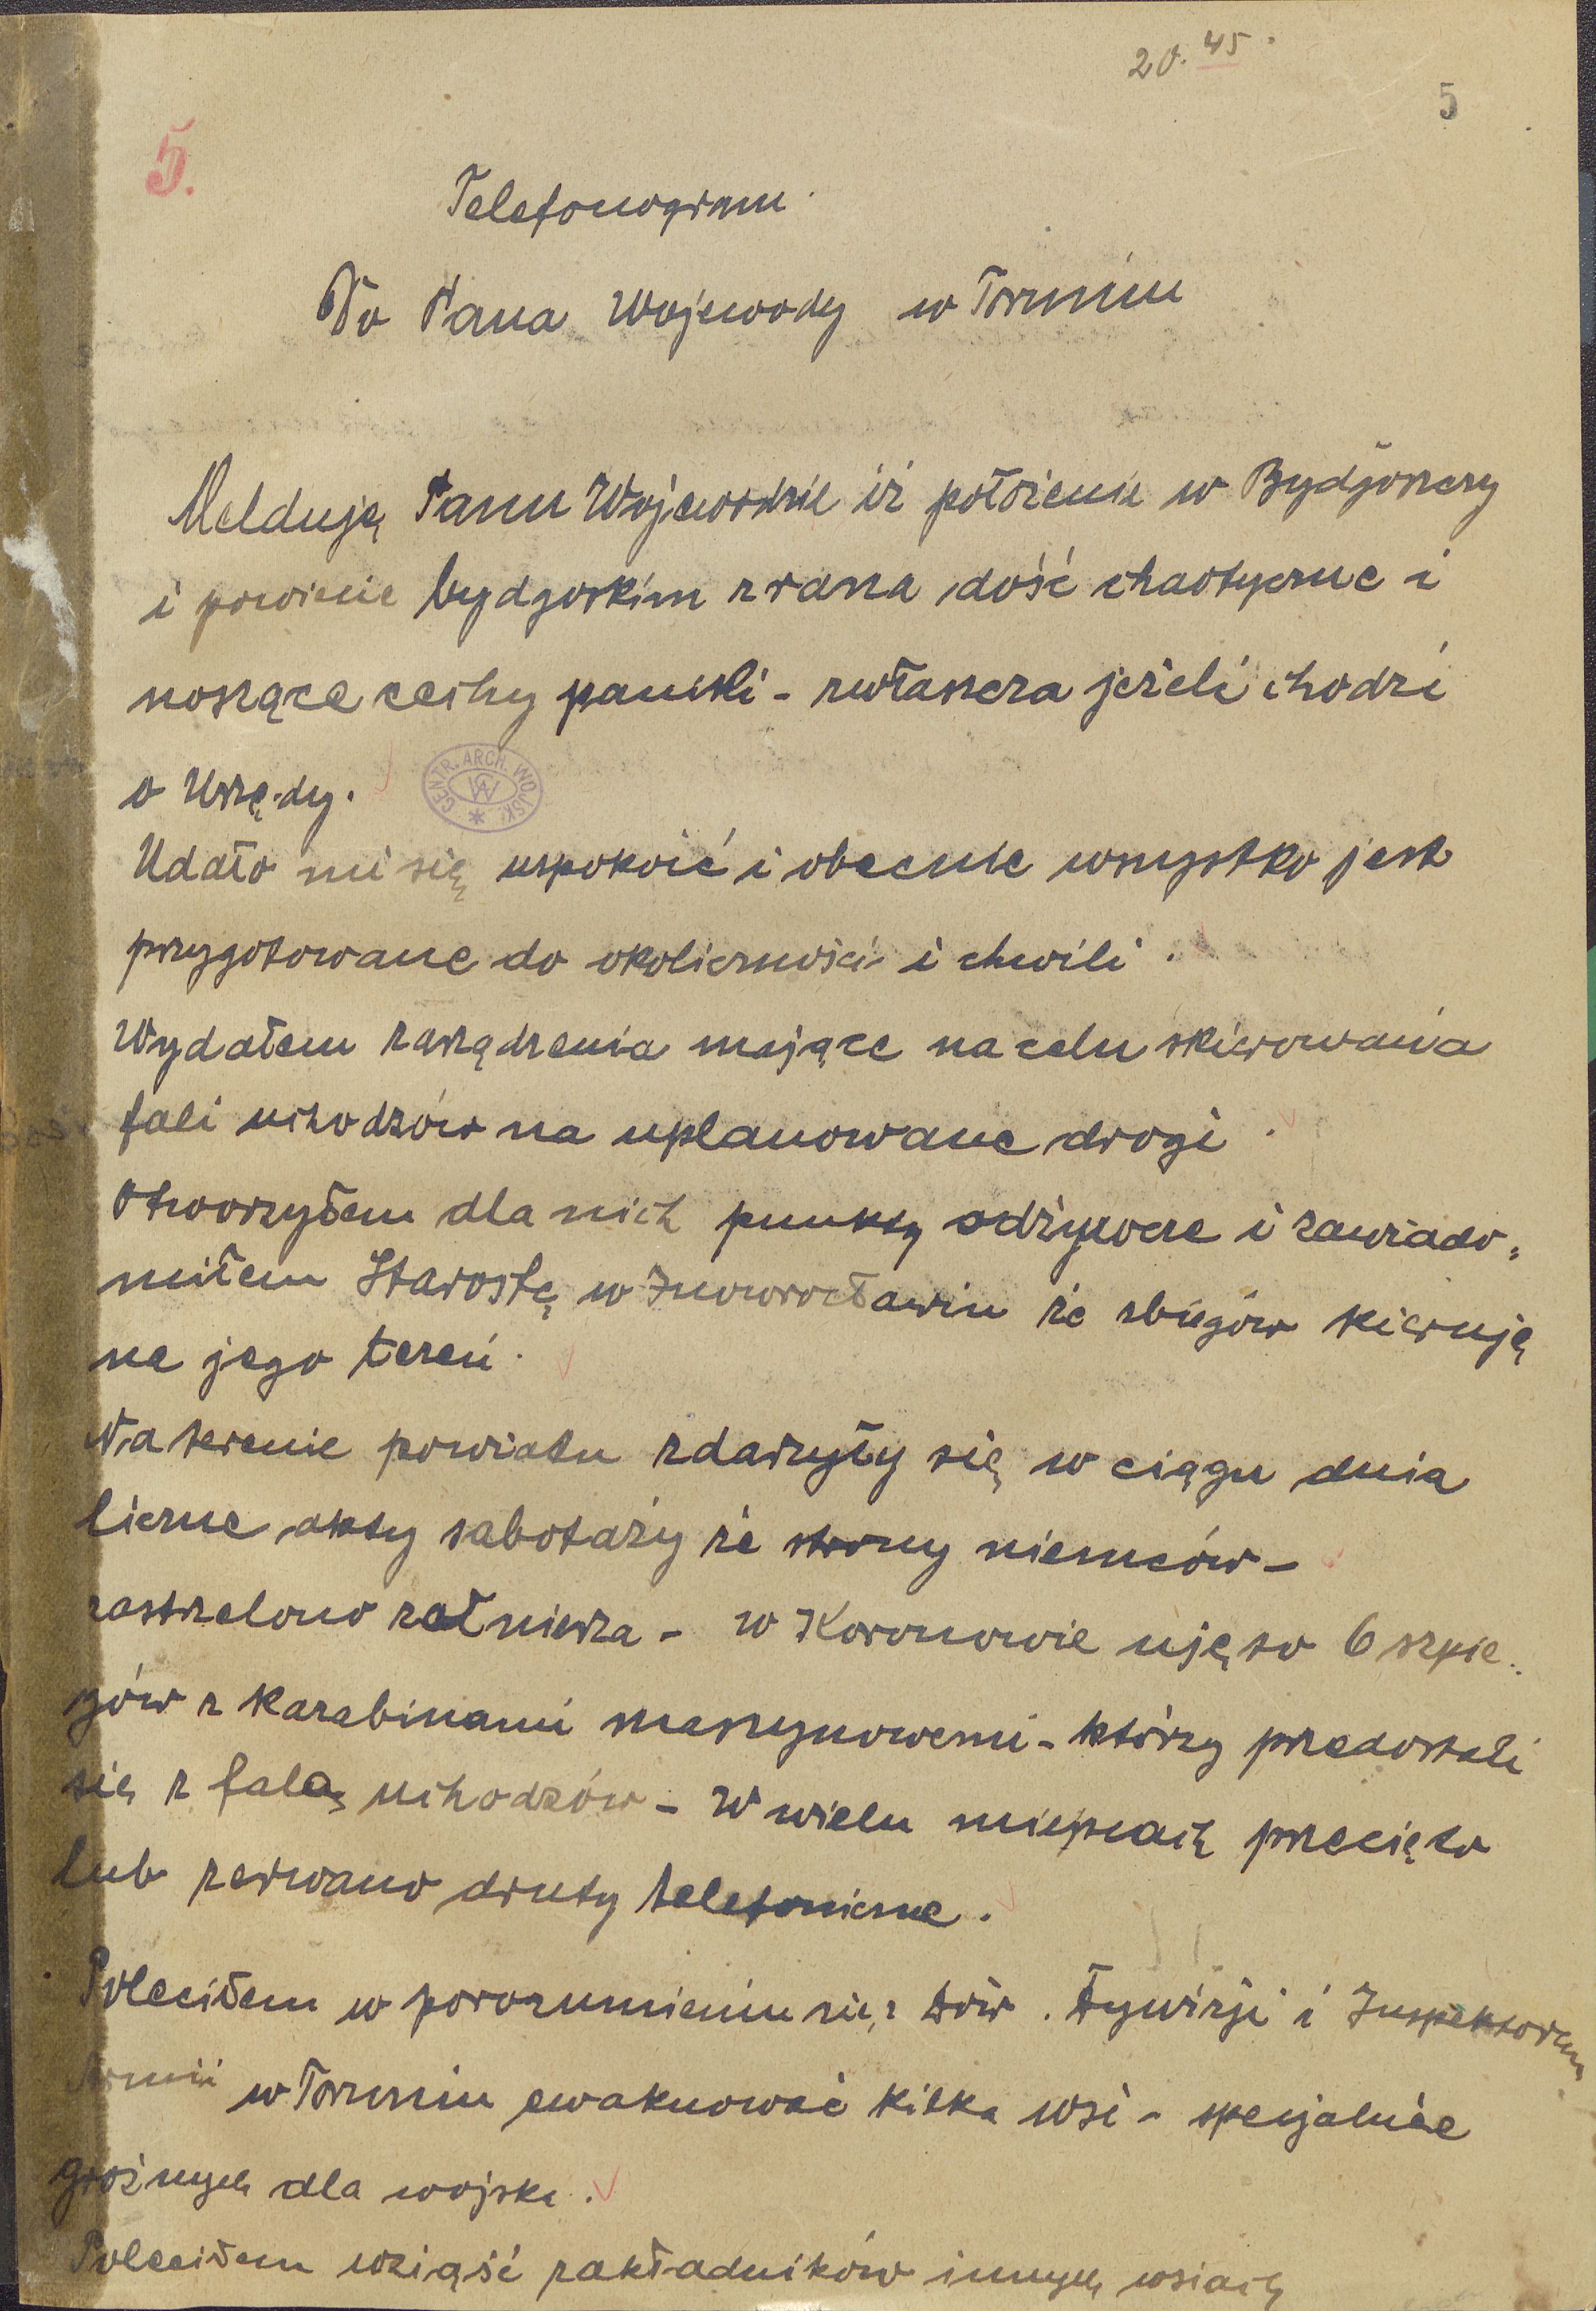 20.45.
5
5.
Telefonogram.
Do Pana Wojewody w Toruniu
Melduję Panu Wojewodzie iż położenie w Bydgoszczy
i powiecie bydgoskim z rana dość chaotyczne i
noszące cechy paniki - zwłaszcza jeżeli chodzi
o Urzędy.
CENTR. ARCH. WOJSK.
Udało mi się uspokoić i obecnie wszystko jest
przygotowane do okoliczności i chwili.
Wydałem zarządzenia mające na celu skierowania
fali uchodzów na uplanowane drogi.
Otworzyłem dla nich punkty odżywcze i zawiado=
miłem Starostę w Inowrocławiu że zbiegów kieruję
na jego tereń.
Na terenie powiatu zdarzyły się w ciągu dnia
liczne akty sabotaży ze strony niemców -
zastrzelono żołnierza - w Koronowie ujęto 6 szpie=
gów z karabinami maszynowemi - którzy przedostali
się z falą uchodzów - W wielu miejscach przecięto
lub zerwano druty telefoniczne.
Poleciłem w porozumieniu się z Dów. Dywizji i Inspektorem
Armii w Toruniu ewakuować kilka wsi - specjalnie
groźnych dla wojska.
Poleciłem wziąść zakładników innych wsiach